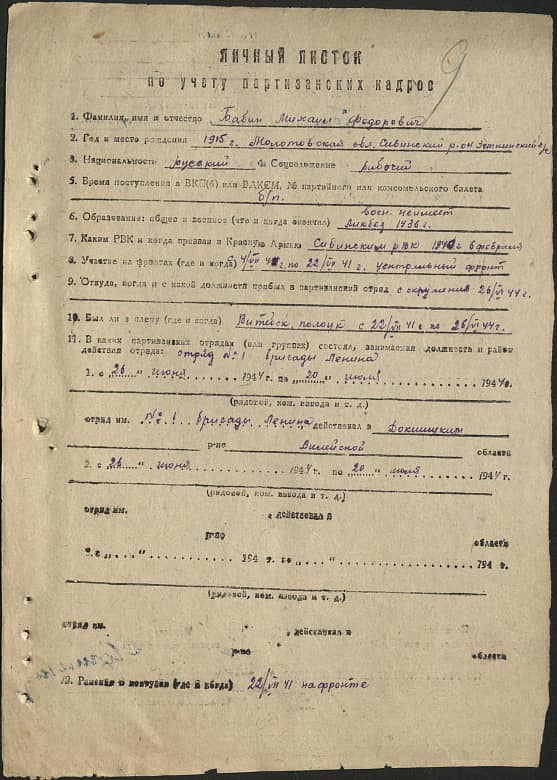 9
ЛИЧНЫЙ ЛИСТОК
по учету партизанских кадров
1. Фамилия, имя и отчество Бабин Михаил Федорович
2. Год и место рождения 1915 г. Молотовская обл. Сивинский р-он
3. Национальность русский 4 Соцположение рабочий
5. Время поступления в ВКП(б) или ВЛКСМ, № партийного или комсомольского билета
б/п.
воен. неимеет
6. Образование: общее и военное (что и когда окончил) Ликбез 1936 г.
7. Каким РВК и когда призван в Красную Армию Сивинским рвк 1940 г в феврале
8. Участие на фронтах (где и когда) с 4/VII 41 г. по 22/VII 41 г. центральный фронт
9. Откуда, когда и с какой должности прибыл в партизанский отряд с окружения 26/VI 44 г.
10. Был ли в плену (где и когда) Витебск, полоцк с 22/VII 41 г по 26/VI 44 г.
11. В каких партизанских отрядах (или группах) состоял, занимаемая должность и район
действия отряда: отряд № 1 бригады Ленина
1. с "26" июня 1944 г. по "20" июля 1944 г.
(рядовой, ком. взвода и т. д.)
отряд им. № 1 бригады Ленина действовал в Докшицким
р-не Вилейской области
2. с "26" июня 1944 г. по "20" июля 1944 г.
(рядовой, ком. взвода и т. д.)
отряд им. , действовал в
р-не области
3. с "....." 194 г. по "....." 194 г.
(рядовой, ком. взвода и т. д.)
отряд им. , действовал в
р-не области
12. Ранения и контузии (где и когда) 22/VII 41 на фронте